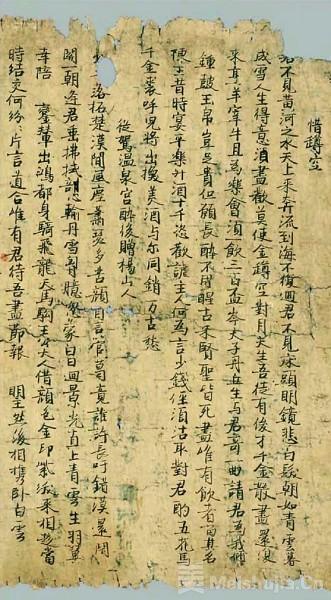 惜罇空
君不見黄河之水天上来奔流到海不復迴君不見床頭明鏡悲白髮朝如青雲暮
成雪人生得意湏盡歡莫使金罇空對月天生吾徒有俊才千金散盡還復
来烹羊宰牛且為樂會湏飲三百盃岑夫子丹丘生与君哥一曲請君為我傾
鍾鼓玉帛豈足貴但願長醉不用醒古来賢聖皆死盡唯有飲者留其名
陳王昔時宴平樂斗酒十千恣歡謔主人何為言少錢俓湏沽取對君酌五花馬
千金裘呼兒將出換美酒与尔同銷万古愁
從駕温泉宫醉後贈楊山人
落拓楚漢間風塵蕭瑟多苦顔自言管葛竟誰許長吁錯漠還閇
關朝逢君垂拂拭剖心輸丹雪胸臆忽蒙白日迴景光直上青雲生羽翼
幸陪鸞輦出鴻都身騎飛龍天馬駒王公大人借顔色金印紫綬来相趍當
時結交何紛〻片言道合唯有君待吾盡節報明主然後相携卧白雲
Meishujia.Cn